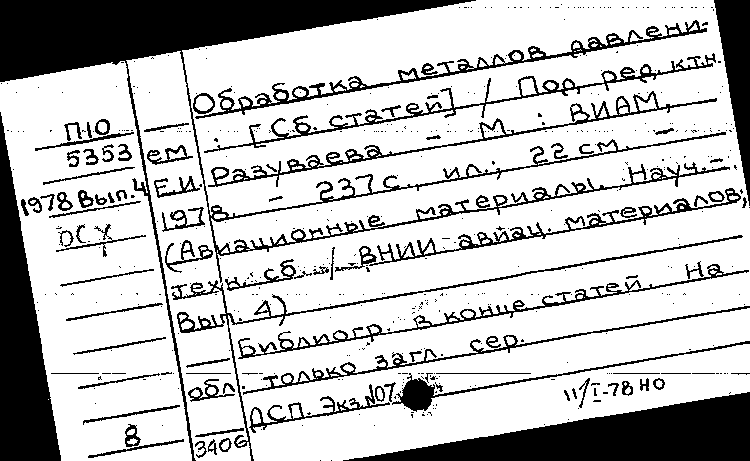 Обработка металлов давлени-
ем : [Сб. статей] / Под ред. к.т.н.
Е.И. Разуваева. - М. : ВИАМ,
1978. - 237 с., ил.; 22 см. -
(Авиационные материалы. Науч.-
техн. сб. / ВНИИ авиац. материалов;
Вып. 4)
Библиогр. в конце статей. На
обл. только загл. сер.
ДСП. Экз. №07
П10
5353
1978 Вып. 4
ОСУ
8
3406
11/I-78 НО